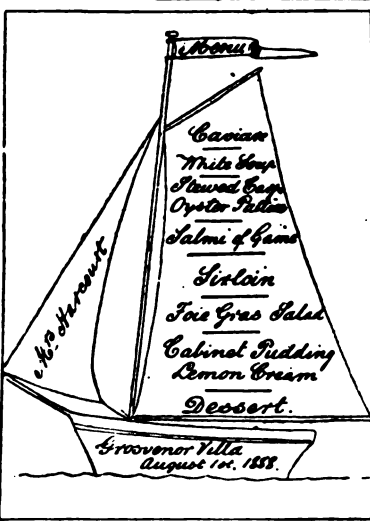 Menu
Caviare
White Soup
Stewed Carp
Oyster Patties
Salmi of Game
Sirloin
Foie Gras Salad
Cabinet Pudding
Lemon Cream
Dessert.
Mrs. Harcourt
Grosvenor Villa
August 1st, 1888.